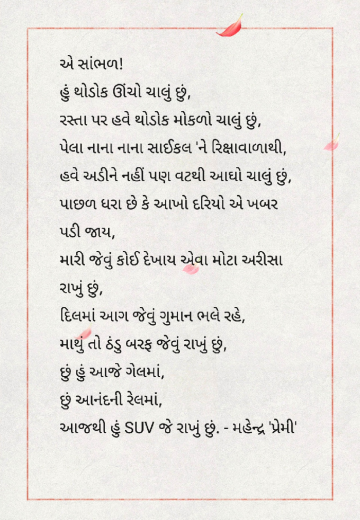 એ સાંભળ!
હું થોડોક ઊંચો ચાલું છું,
રસ્તા પર હવે થોડોક મોકળો ચાલું છું,
પેલા નાના નાના સાઈકલ 'ને રિક્ષાવાળાથી,
હવે અડીને નહીં પણ વટથી આઘો ચાલું છું,
પાછળ ધરા છે કે આખો દરિયો એ ખબર
પડી જાય,
મારી જેવું કોઈ દેખાય એવા મોટા અરીસા
રાખું છું,
દિલમાં આગ જેવું ગુમાન ભલે રહે,
માથું તો ઠંડુ બરફ જેવું રાખું છું,
છું હું આજે ગેલમાં,
છું આનંદની રેલમાં,
આજથી હું SUV જે રાખું છું. - મહેન્દ્ર 'પ્રેમી'